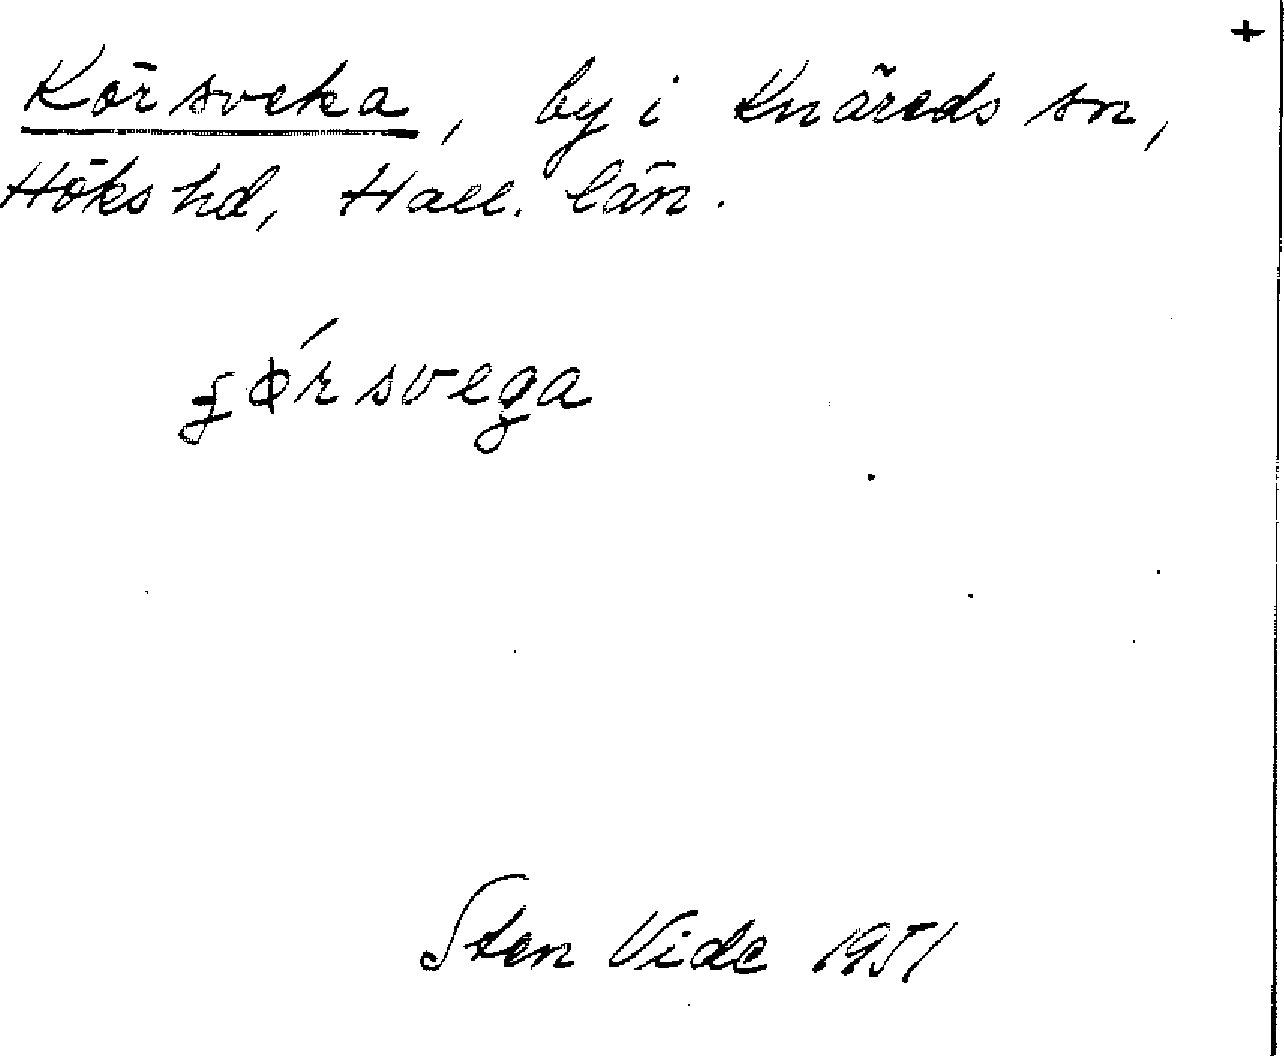 +
Körsveka, by i Knäreds sn,
Höks hd, Hall. län.
ʄǿrsvega
Sten Vide 1951